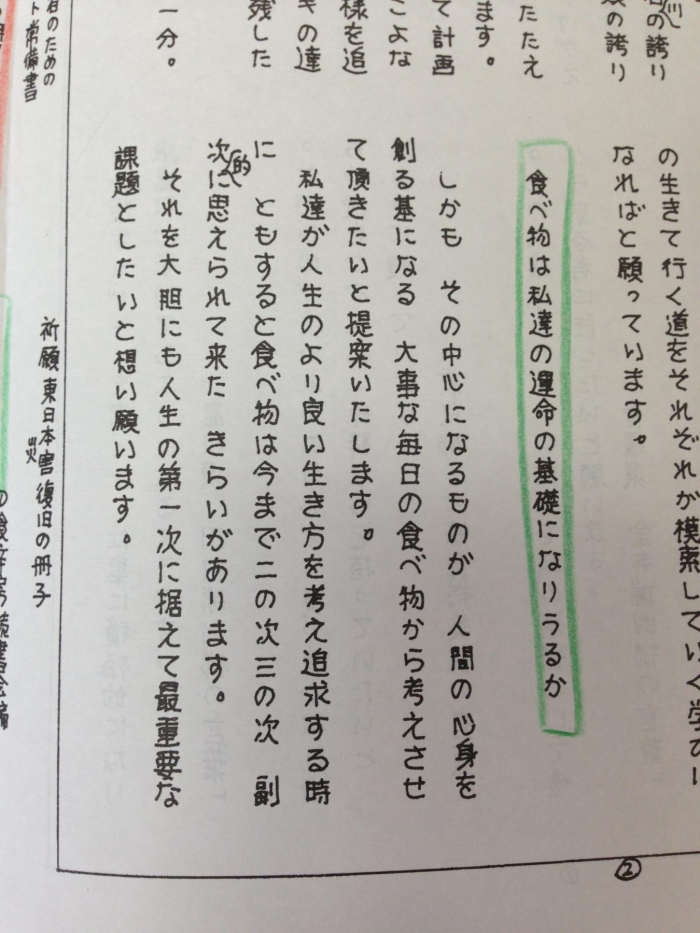 の誇り
の誇り
たたえ
ます。
て計画
こよな
様を追
キの達
残した
一分。
の生きて行く道をそれぞれが模索していく学び
なればと願っています。
食べ物は私達の運命の基礎になりうるか
しかも その中心になるものが 人間の心身を
創る基になる 大事な毎日の食べ物から考えさせ
て頂きたいと提案いたします。
私達が人生のより良い生き方を考え追求する時
に ともすると食べ物は今まで二の次三の次 副
次的に思えられて来た きらいがあります。
それを大胆にも人生の第一次に据えて最重要な
課題としたいと想い願います。
のための
ト常備書
祈願東日本災害復旧の冊子
②